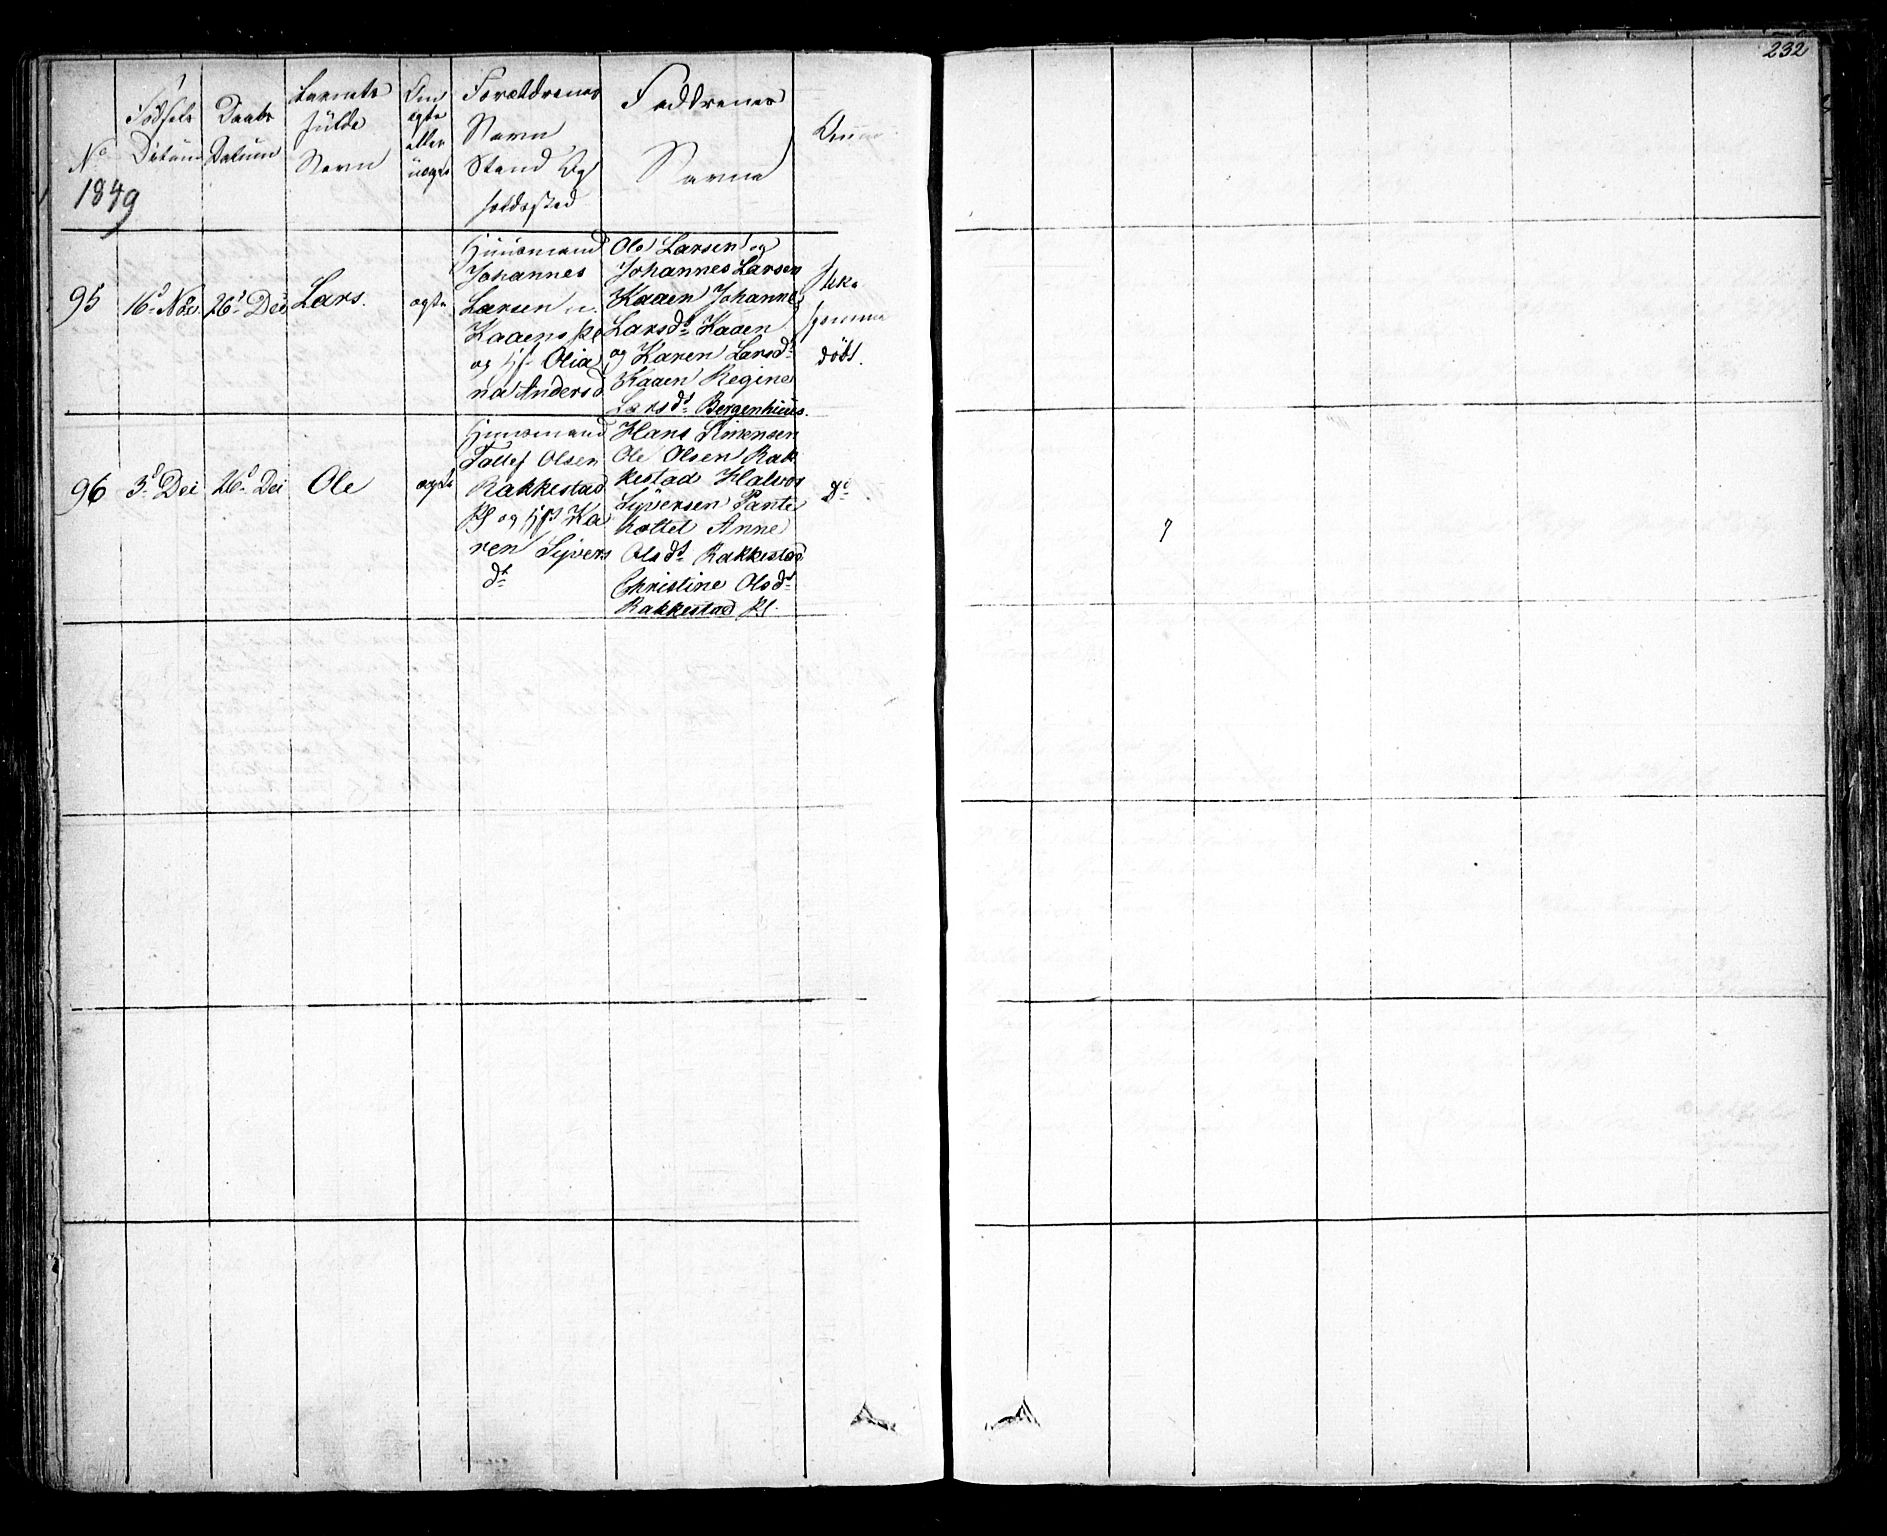 232
No
1849
Fødsels
Datum
Daabs
Datum
Barnets
fulde
Navn
Om
ægte
eller
uægte
Forældrenes
Navn
Stand Og
holdssted
Faddrenes
Navne
Anm
95
16d Nov.
26d Dec
Lars.
ægte
Huusmand
Johannes
Larsen
Kaaens
og Olia
na Andersd
Ole Larsen og
Johannes Larsen
Kaaen Johanne
Larsdt Kaaen
og Karen Larsdt
Kaaen Regine
Larsdt Bergenhuus.
ikke
hjemme
døbt.
96
3d Dec
26d Dec
Ole
ægte
Huusmand
Tollef Olsen
Rakkestad
og Ka
ren Syvers
dt
Hans Simensen
Ole Olsen Rak
kestad Halvor
Syversen Pante
hottet Anne
Olsdt Rakkestad
Christine Olsdt
Rakkestad
Do